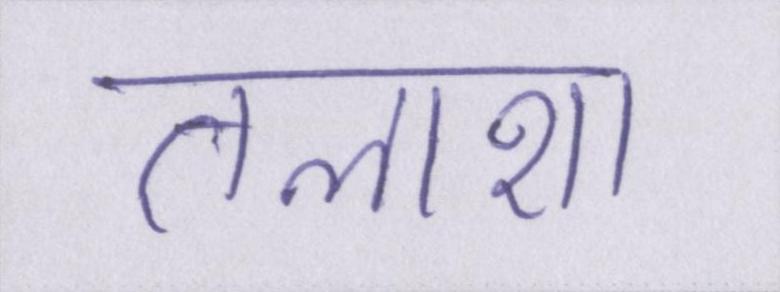 तलाश